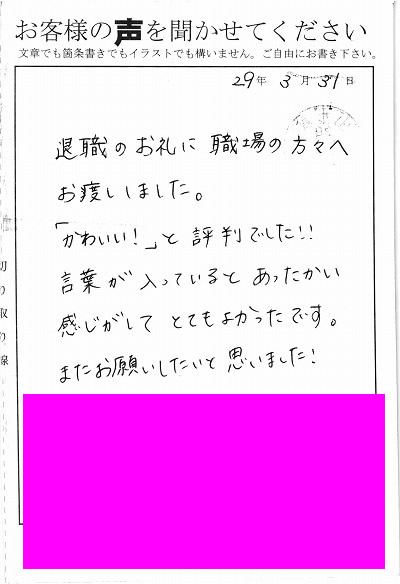 お客様の声を聞かせてください
文章でも箇条書きでもイラストでも構いません。ご自由にお書き下さい。
29年 3月 31日
退職のお礼に 職場の方々へ
お渡ししました。
「かわいい！」と 評判でした!!
言葉が 入っていると あったかい
感じがして とてもよかったです。
またお願いしたいと 思いました！
切り取り線